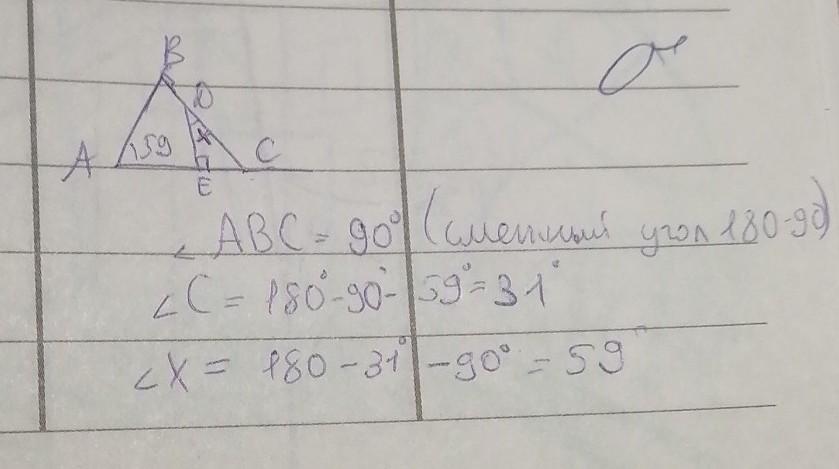 B
D
x
A 59 C
E
∠ABC = 90° (смежный угол 180-90)
∠C = 180°-90°-59°=31°
∠X = 180-31°-90°=59°